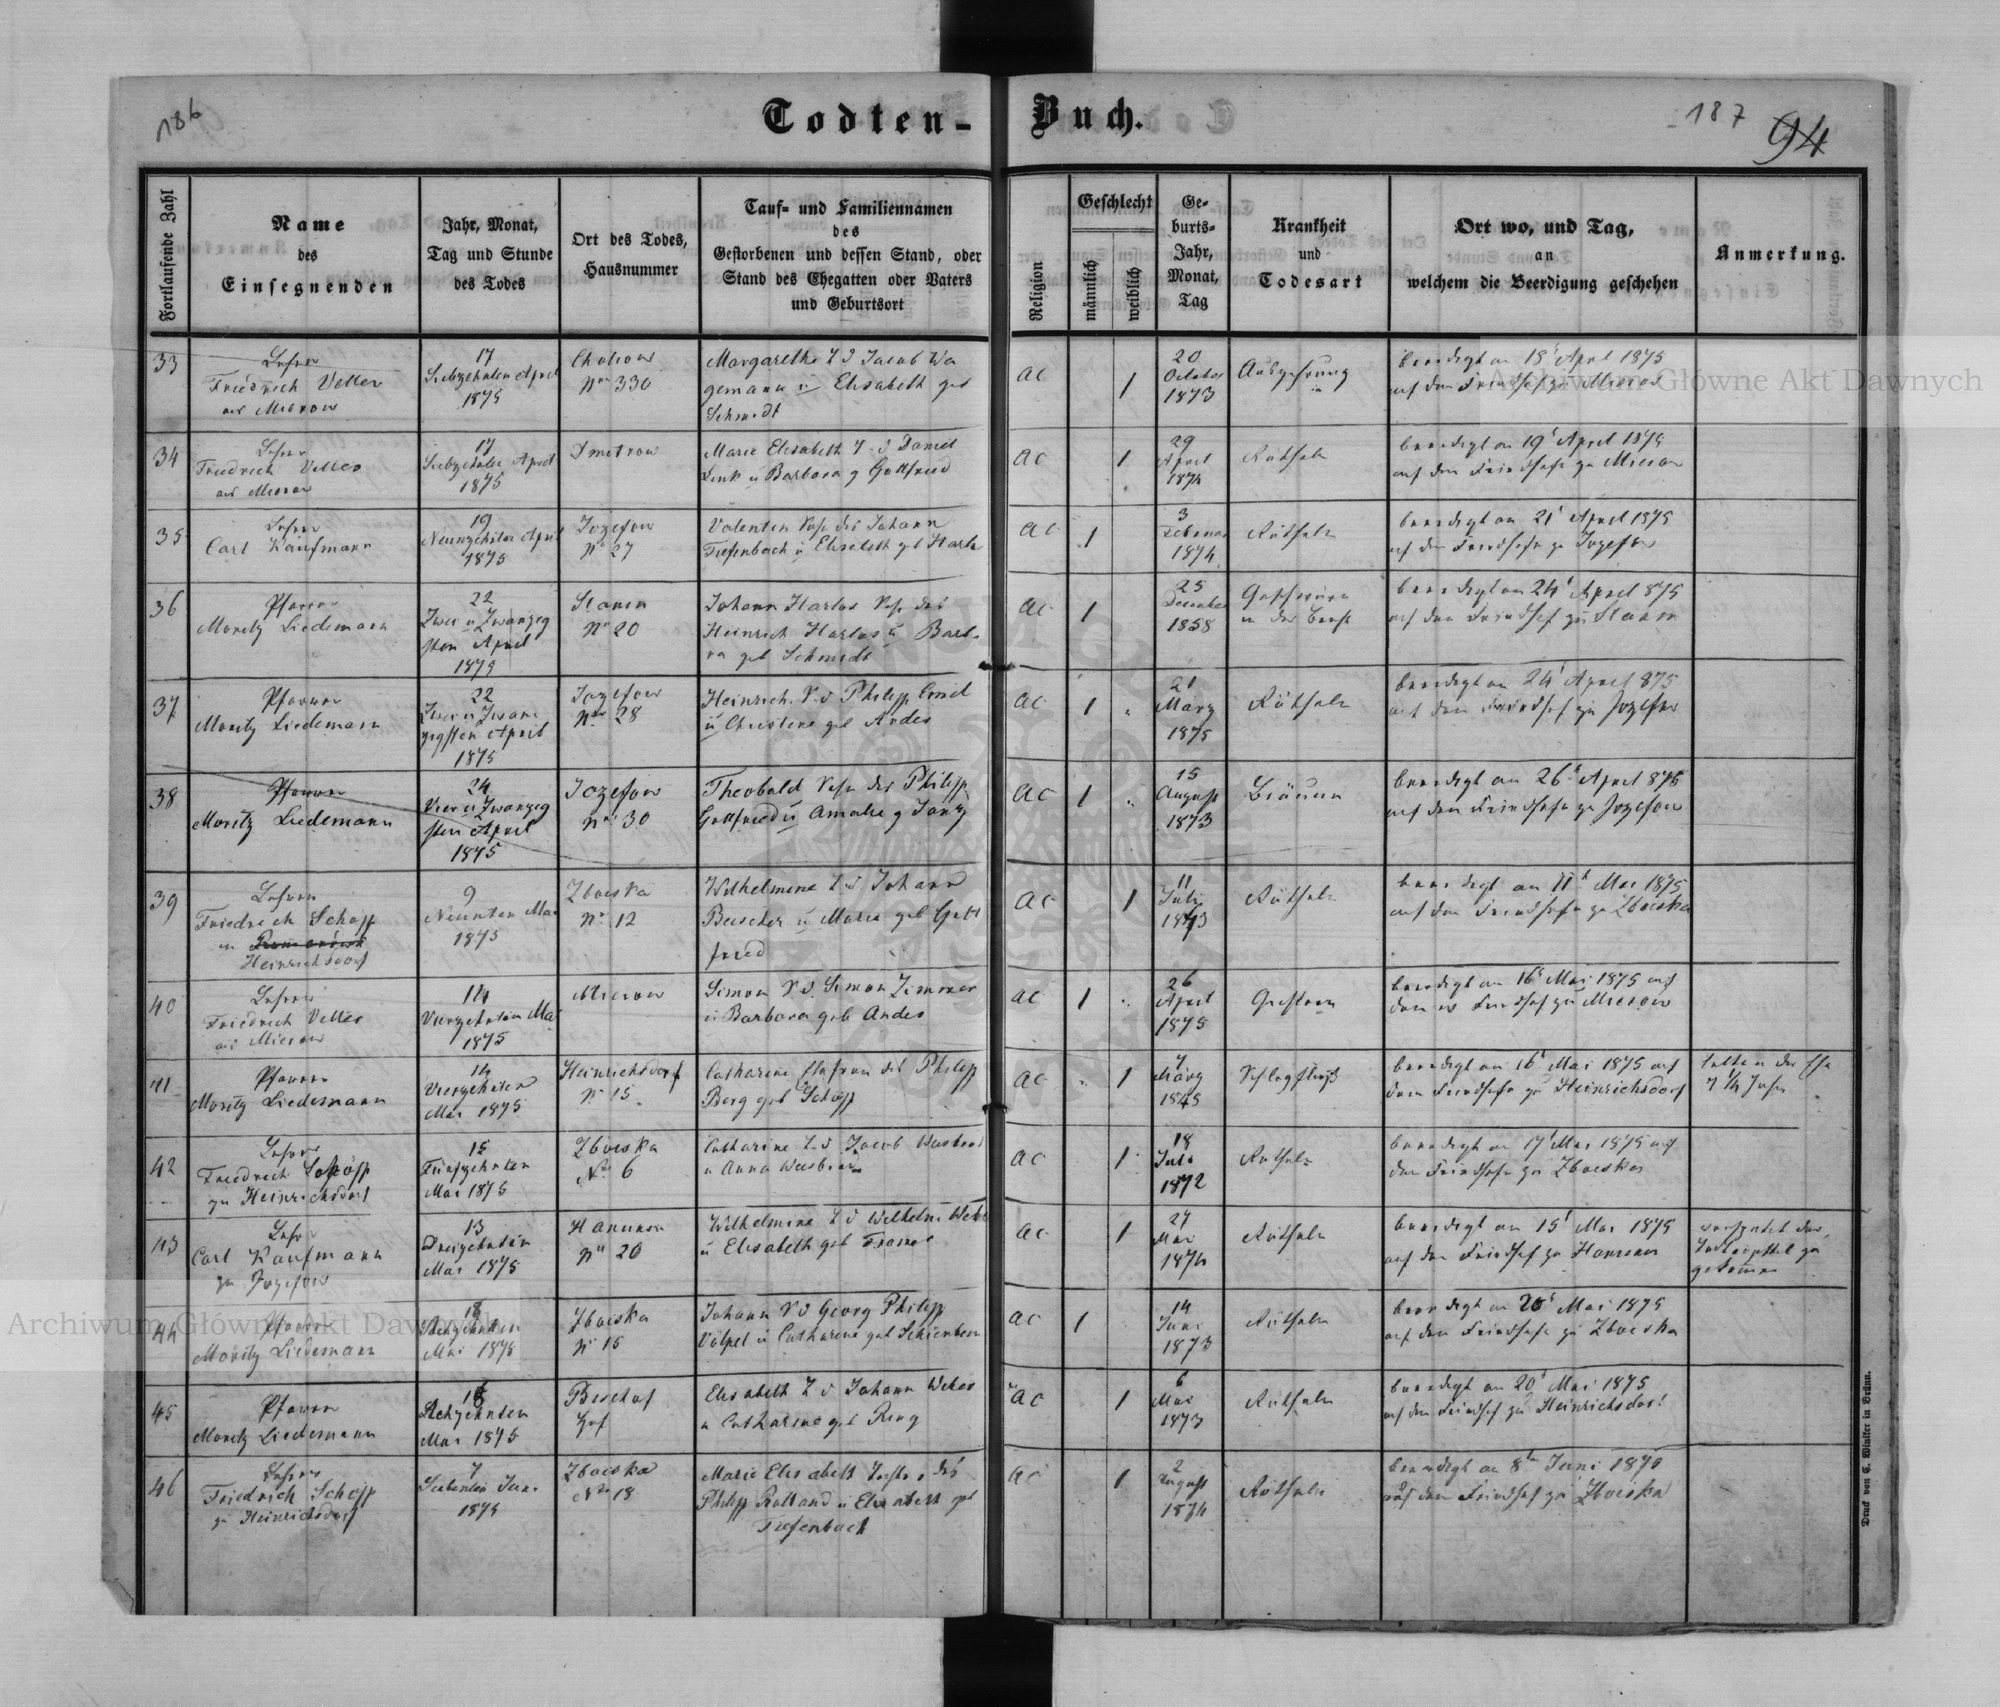 186
Todten-Buch.
187
94
Fortlaufende Zahl
Name
des
Einsegnenden
Jahr, Monat,
Tag und Stunde
des Todes
Ort des Todes,
Hausnummer
Tauf= und Familiennamen
des
Gestorbenen und dessen Stand, oder
Stand des Ehegatten oder Vaters
und Geburtsort
Religion
Geschlecht
männlich
weiblich
Ge-
burts=
Jahr,
Monat,
Tag
Krankheit
und
Todesart
Ort wo, und Tag,
an
welchem die Beerdigung geschehen
Anmerkung.
33
Lehrer
Friedrich Vetter
aus Mierow
17
Siebzehnten April
1875
No 330
Margaretha T d Jacob Wa
gemann u Elisabeth geb
Schmidt
AC
1
20
October
1873
beerdigt am 18t April 1875
auf dem Friedhofe zu Mierow
34
Lehrer
Friedrich Vetter
aus Mierow
17
Siebzehnten April
1875
Dmitrow
Marie Elisabeth T. d Daniel
Link u Barbara g Gottfried
AC
1
29
April
1874
Rötheln
beerdigt am 19t April 1875
auf dem Friedhofe zu Mierow
35
Lehrer
Carl Kaufmann
19
Neunzehnten April
1875
Jozefow
No 27
Valentin Sohn des Johann
Tiefenbach u Elisabeth geb
AC
1
3
Februar
1874
Rötheln
beerdigt am 21t April 1875
auf dem Friedhofe zu Jozefow
36
Pfarrer
Moritz Liedemann
22
Zwei u Zwanzig
sten April
1875
Stanin
No 20
Johann Harlos Sohn des
Heinrich Harlos u Barba
ra geb Schmidt
AC
1
25
December
1858
in der
beerdigt am 24t April 875
auf dem Friedhof zu Stanin
37
Pfarrer
Moritz Liedemann
22
Zwei u Zwan
zigsten April
1875
Jozefow
No 28
Heinrich S. d Philipp
u Christine geb Andes
AC
1 "
21
März
1875
Rötheln
beerdigt am 24t April 875
auf dem Friedhof zu Jozefow
38
Pfarrer
Moritz Liedemann
24
Vier u Zwanzig
sten April
1875
Jozefow
No 30
Theobald Sohn des Philipp
Gottfried u Amalie g
AC
1 "
15
August
1873
Bräune
beerdigt am 26t April 875
auf dem Friedhofe zu Jozefow
39
Lehrer
Friedrich Schöpp
in
Heinrichsdorf
9
Neunten Mai
1875
Zboiska
No 12
Wilhelmine T d Johann
u Marie geb Gott
fried
AC
1
11
Juli
1873
Rötheln
beerdigt am 11t Mai 1875
auf dem Friedhofe zu Zboiska
40
Lehrer
Friedrich Vetter
aus Mierow
14
Vierzehnten Mai
1875
Mierow
Simon S d. Simon Zimmer
u Barbara geb Andes
AC
1
26
April
1875
beerdigt am 16t Mai 1875 auf
dem Friedhof zu Mierow
41
Pfarrer
Moritz Liedemann
14
Vierzehnten
Mai 1875
Heinrichsdorf
No 15
Catharine Ehefrau des Philipp
Berg geb Schöpp
AC
" 1
März
Schlagfluß
beerdigt am 16t Mai 1875 auf
dem Friedhofe zu Heinrichsdorf
42
Lehrer
Friedrich Schöpp
zu Heinrichsdorf
15
Fünfzehnten
Mai 1875
Zboiska
No 6
Catharine T. d Jacob
u Anna
AC
1
18
Juli
1872
Rötheln
beerdigt am 17t Mai 1875 auf
dem Friedhofe zu Zboiska
43
Lehrer
Carl Kaufmann
zu Jozefow
13
Dreizehnten
Mai 1875
Hanunin
No 20
Wilhelmine T d Wilhelm
u Elisabeth geb
AC
1
27
Mai
1874
Rötheln
beerdigt am 15t Mai 1875
auf dem Friedhof zu Hanunin
verspätet der
44
Pfarrer
Moritz Liedemann
18
Achtzehnten
Mai 1875
Zboiska
No 15
Johann S d Georg Philipp
Völpel u Catharine geb
AC
1
14
Juni
1873
Rötheln
beerdigt am 20t Mai 1875
auf dem Friedhofe zu Zboiska
45
Pfarrer
Moritz Liedemann
18
Achtzehnten
Mai 1875
Elisabeth T d Johann Weber
u Catharine geb Ring
AC
1
6
Mai
1873
Rötheln
beerdigt am 20t Mai 1875
auf dem Friedhof zu Heinrichsdorf
46
Lehrer
Friedrich Schöpp
zu Heinrichsdorf
7
Siebenten Juni
1875
Zboiska
No 18
Marie Elisabeth Tochter des
Philipp Rolland u Elisabeth geb
Tiefenbach
AC
1
2
August
1874
Rötheln
beerdigt am 8ten Juni 187
auf dem Friedhof zu Zboiska
Druck von C. Winiker in Brünn.
Archiwum Główne Akt Dawnych
Archiwum Główne Akt Dawnych